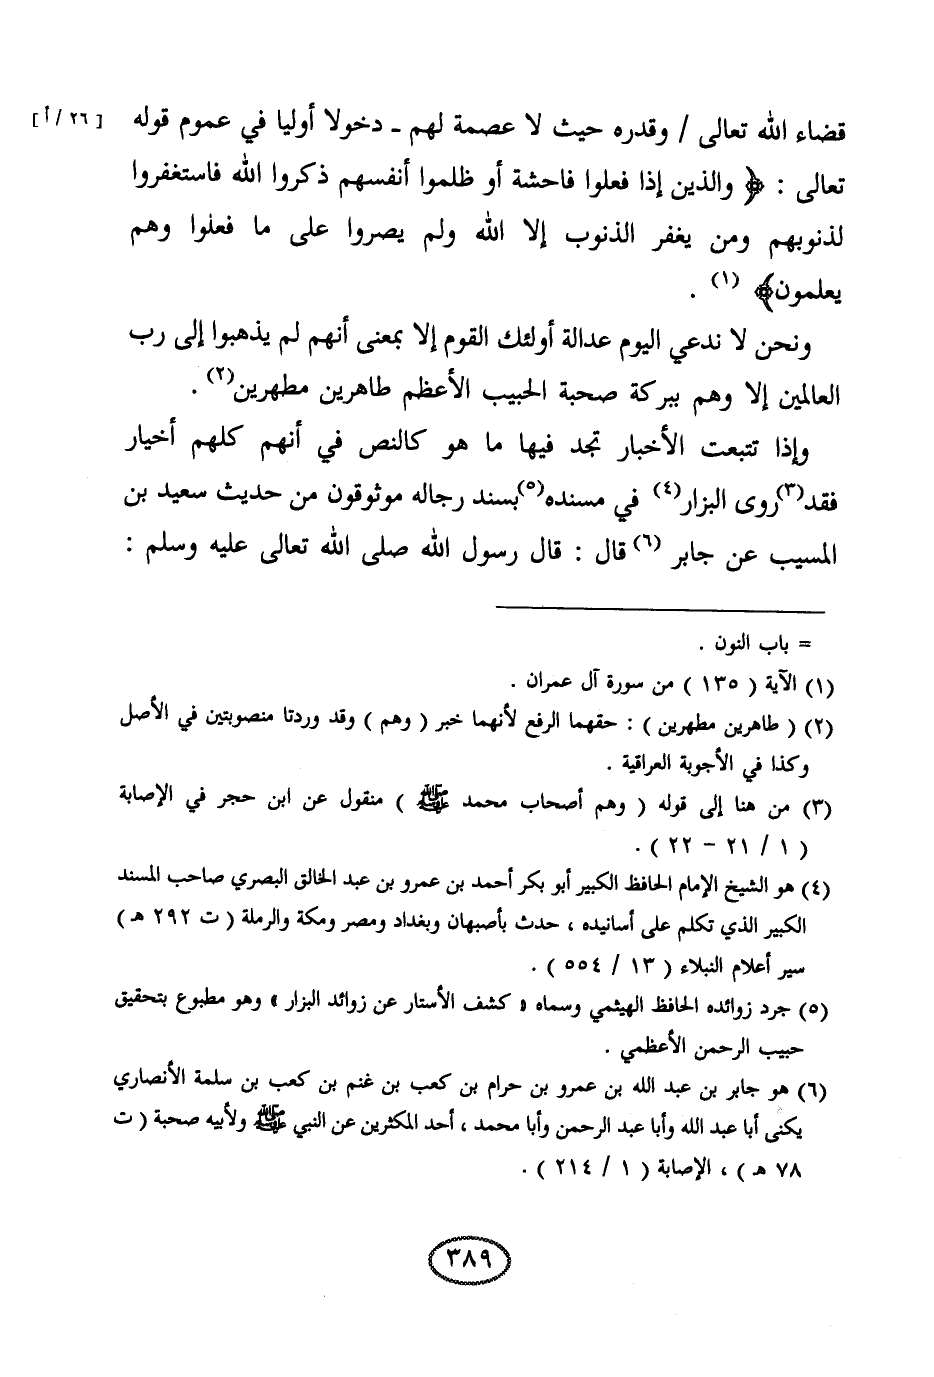 قضاء الله تعالى / وقدره حيث لا عصمة لهم ـ دخولا أوليا في عموم قوله [ ٢٦ / أ ]
تعالى : ﴿ والذين إذا فعلوا فاحشة أو ظلموا أنفسهم ذكروا الله فاستغفروا
لذنوبهم ومن يغفر الذنوب إلا الله ولم يصروا على ما فعلوا وهم
يعلمون﴾ (١) .
ونحن لا ندعي اليوم عدالة أولئك القوم إلا بمعنى أنهم لم يذهبوا إلى رب
العالمين إلا وهم ببركة صحبة الحبيب الأعظم طاهرين مطهرين(٢) .
وإذا تتبعت الأخبار تجد فيها ما هو كالنص في أنهم كلهم أخيار
فقد(٣)روى البزار(٤) في مسنده(٥)بسند رجاله موثوقون من حديث سعيد بن
المسيب عن جابر (٦) قال : قال رسول الله صلى الله تعالى عليه وسلم :
= باب النون .
(١) الآية ( ١٣٥ ) من سورة آل عمران .
(٢) ( طاهرين مطهرين ) : حقهما الرفع لأنهما خبر ( وهم ) وقد وردتا منصوبتين في الأصل
وكذا في الأجوبة العراقية .
(٣) من هنا إلى قوله ( وهم أصحاب محمد ﷺ ) منقول عن ابن حجر في الإصابة
( ١ / ٢١ – ٢٢ ) .
(٤) هو الشيخ الإمام الحافظ الكبير أبو بكر أحمد بن عمرو بن عبد الخالق البصري صاحب المسند
الكبير الذي تكلم على أسانيده ، حدث بأصبهان وبغداد ومصر ومكة والرملة ( ت ٢٩٢ هـ )
سير أعلام النبلاء ( ١٣ / ٥٥٤ ) .
(٥) جرد زوائده الحافظ الهيثمي وسماه « كشف الأستار عن زوائد البزار » وهو مطبوع بتحقيق
حبيب الرحمن الأعظمي .
(٦) هو جابر بن عبد الله بن عمرو بن حرام بن كعب بن غنم بن كعب بن سلمة الأنصاري
يكنى أبا عبد الله وأبا عبد الرحمن وأبا محمد ، أحد المكثرين عن النبي ﷺ ولأبيه صحبة ( ت
٧٨ هـ ) ، الإصابة ( ١ / ٢١٤ ) .
٣٨٩